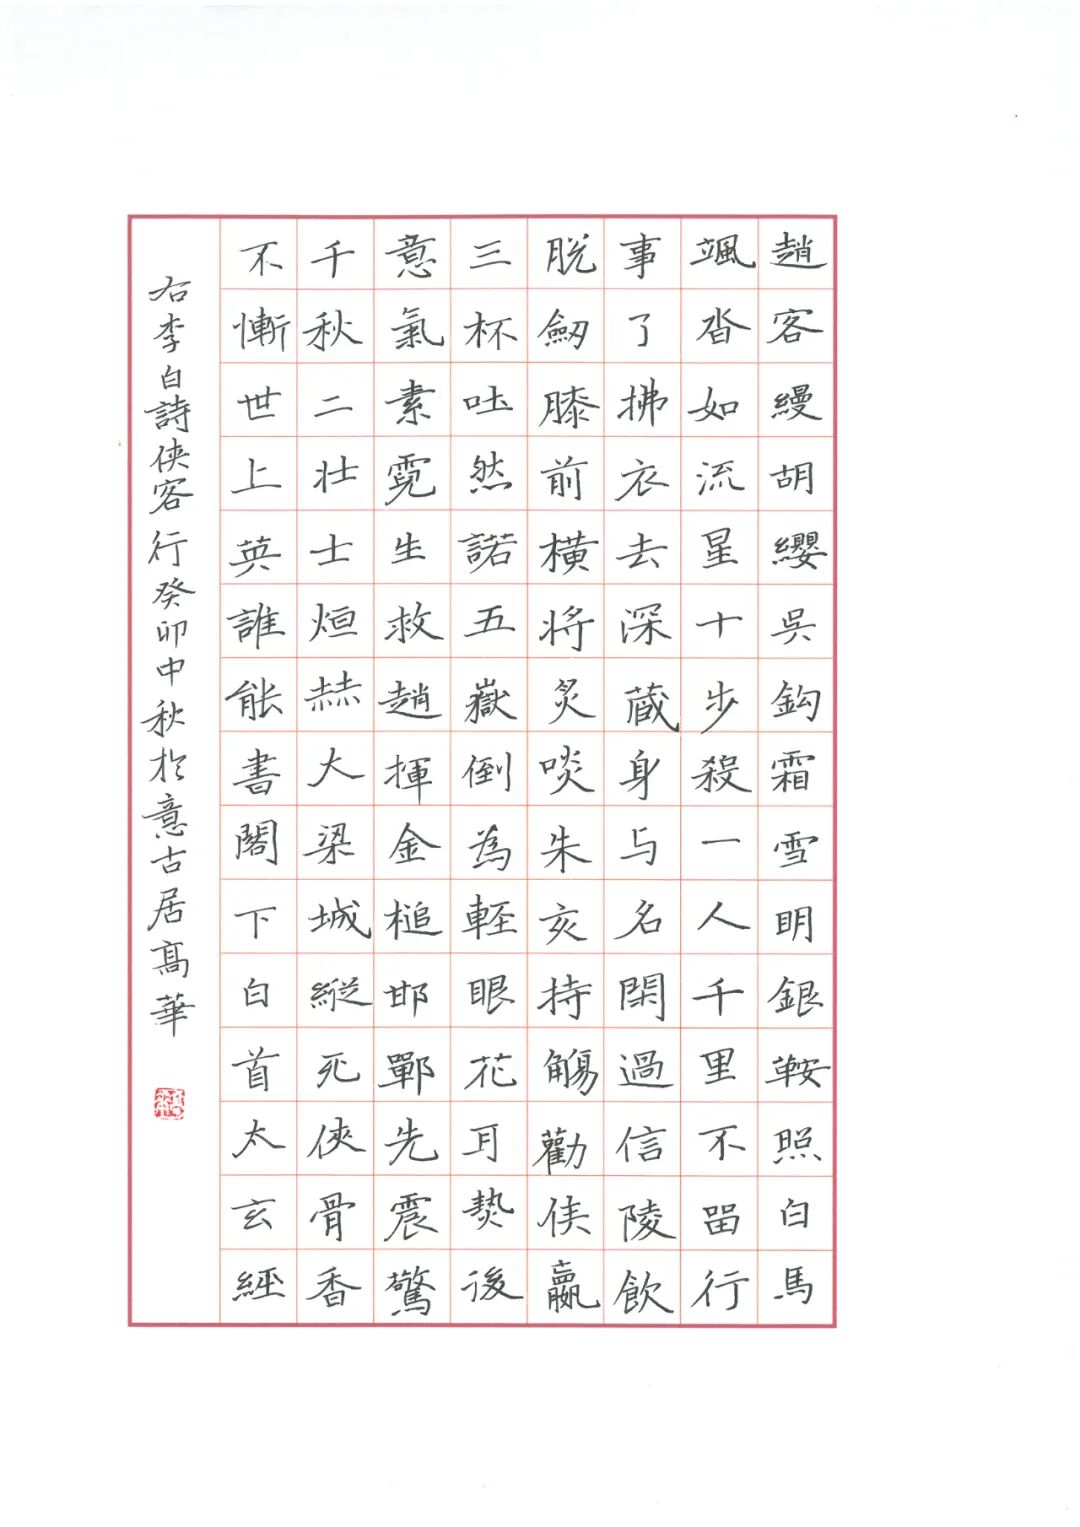 趙客縵胡纓吳鈎霜雪明銀鞍照白馬
颯沓如流星十步殺一人千里不畱行
事了拂衣去深蔵身与名閑過信陵飲
脱劒膝前橫将炙啖朱亥持觴勸侯嬴
三杯吐然諾五嶽倒為輕眼花耳熱後
意氣素霓生救趙揮金槌邯鄲先震驚
千秋二壮士烜赫大梁城縱死俠骨香
不慚世上英誰能書閣下白首太玄經
右李白詩俠客行癸卯中秋於意古居髙華